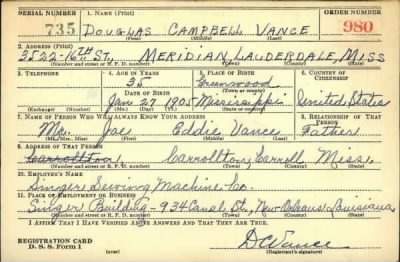 SERIAL NUMBER 1. NAME (Print) ORDER NUMBER
735 DOUGLAS CAMPBELL VANCE 980
(First) (Middle) (Last)
2. ADDRESS (Print)
3522-16TH ST, MERIDIAN LAUDERDALE, MISS
(Number and street or R. F. D. number) (Town) (County) (State)
3. TELEPHONE 4. AGE IN YEARS 5. PLACE OF BIRTH 6. COUNTRY OF CITIZENSHIP
35 Greenwood
DATE OF BIRTH (Town or county)
Jan 27 1905 Mississippi United States
(Exchange) (Number) (Mo.) (Day) (Yr.) (State or country)
7. NAME OF PERSON WHO WILL ALWAYS KNOW YOUR ADDRESS 8. RELATIONSHIP OF THAT PERSON
Mr. Joe Eddie Vance Father
(Mr., Mrs., Miss) (First) (Middle) (Last)
9. ADDRESS OF THAT PERSON
Carrollton Carrollton, Carroll Miss.
(Number and street or R. F. D. number) (Town) (County) (State)
10. EMPLOYER'S NAME
Singer Sewing Machine Co.
11. PLACE OF EMPLOYMENT OR BUSINESS
Singer Building - 934 Canal St., New Orleans Louisiana
(Number and street or R. F. D. number) (Town) (County) (State)
I AFFIRM THAT I HAVE VERIFIED ABOVE ANSWERS AND THAT THEY ARE TRUE.
REGISTRATION CARD
D. S. S. Form 1 (over) D C Vance
(Registrant's signature)